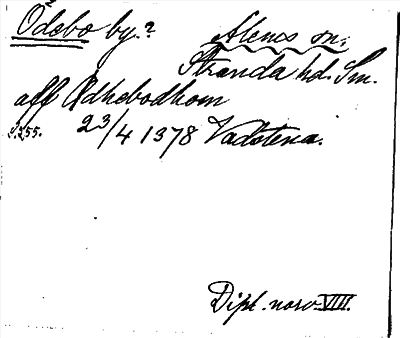 Ödebo by.? Ålems sn.
Stranda hd. Sm.
aff Ødhebodhom
s. 255. 23/4 1378 Vadstena.
Dipl. norv. VIII.